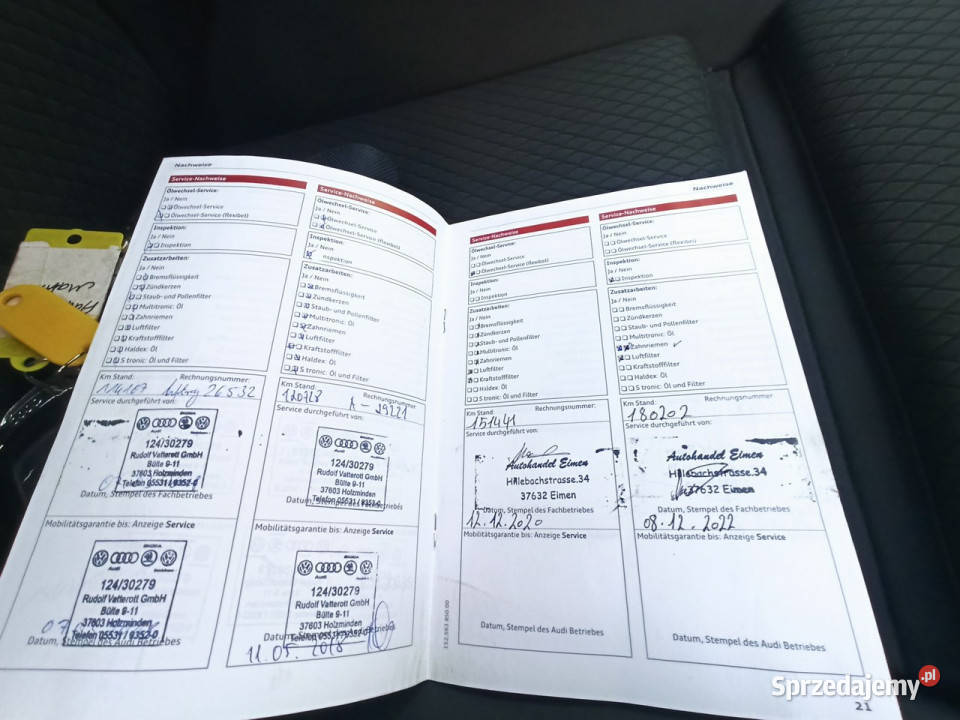 Nachweise
Service-Nachweise
Ölwechsel-Service:
Ja / Nein
Ölwechsel-Service
Ölwechsel-Service (flexibel)
Inspektion:
Ja / Nein
Inspektion
Zusatzarbeiten:
Ja / Nein
Bremsflüssigkeit
Zündkerzen
Staub- und Pollenfilter
Multitronic: Öl
Zahnriemen
Luftfilter
Kraftstofffilter
Haldex: Öl
S tronic: Öl und Filter
Km Stand:
Rechnungsnummer:
26532
Service durchgeführt von:
Audi
124/30279
Rudolf Vatterott GmbH
Bülte 9-11
37603 Holzminden
Telefon 05531 / 9352-0
Datum, Stempel des Fachbetriebes
Mobilitätsgarantie bis: Anzeige Service
Audi
124/30279
Rudolf Vatterott GmbH
Bülte 9-11
37603 Holzminden
Telefon 05531 / 9352-0
Datum, Stempel des Audi Betriebes
Service-Nachweise
Ölwechsel-Service:
Ja / Nein
Ölwechsel-Service
Ölwechsel-Service (flexibel)
Inspektion:
Ja / Nein
nspektion
Zusatzarbeiten:
Ja / Nein
Bremsflüssigkeit
Zündkerzen
Staub- und Pollenfilter
Multitronic: Öl
Zahnriemen
Luftfilter
Kraftstofffilter
Haldex: Öl
S tronic: Öl und Filter
Km Stand:
Rechnungsnummer:
Service durchgeführt von:
Audi
124/30279
Rudolf Vatterott GmbH
Bülte 9-11
37603 Holzminden
Telefon 05531 / 9352-0
Datum, Stempel des Fachbetriebes
Mobilitätsgarantie bis: Anzeige Service
Audi
124/30279
Rudolf Vatterott GmbH
Bülte 9-11
37603 Holzminden
Telefon 05531 / 9352-0
Datum, Stempel des Audi Betriebes
11.05.2018
Nachweise
Service-Nachweise
Ölwechsel-Service:
Ja / Nein
Ölwechsel-Service
Ölwechsel-Service (flexibel)
Inspektion:
Ja / Nein
Inspektion
Zusatzarbeiten:
Ja / Nein
Bremsflüssigkeit
Zündkerzen
Staub- und Pollenfilter
Multitronic: Öl
Zahnriemen
Luftfilter
Kraftstofffilter
Haldex: Öl
S tronic: Öl und Filter
Km Stand:
Rechnungsnummer:
151441
Service durchgeführt von:
Autohandel Eimen
Hillebachstrasse.34
37632 Eimen
Datum, Stempel des Fachbetriebes
12.12.2020
Mobilitätsgarantie bis: Anzeige Service
Datum, Stempel des Audi Betriebes
Service-Nachweise
Ölwechsel-Service:
Ja / Nein
Ölwechsel-Service
Ölwechsel-Service (flexibel)
Inspektion:
Ja / Nein
Inspektion
Zusatzarbeiten:
Ja / Nein
Bremsflüssigkeit
Zündkerzen
Staub- und Pollenfilter
Multitronic: Öl
Zahnriemen
Luftfilter
Kraftstofffilter
Haldex: Öl
S tronic: Öl und Filter
Km Stand:
Rechnungsnummer:
180202
Service durchgeführt von:
Autohandel Eimen
Hillebachstrasse.34
37632 Eimen
Datum, Stempel des Fachbetriebes
08.12.2022
Mobilitätsgarantie bis: Anzeige Service
Datum, Stempel des Audi Betriebes
21
Sprzedajemy.pl